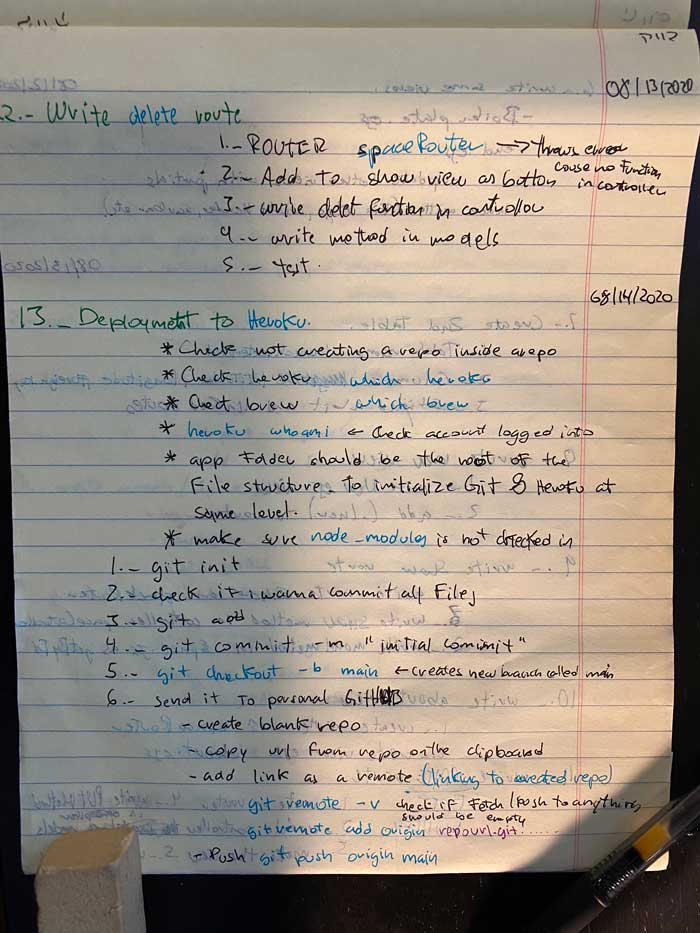 08/13/2020
2.- Write delete route
1.- ROUTER spaceRouter → throws error
cause no Function
2.- Add to show view as botton in controller
3.- write delet function in controller
4.- write method in models
5.- test.
08/14/2020
13.- Deployment to Heroku.
* Check not creating a repo inside a repo
* Check heroku which heroku
* Chect brew which brew
* heroku whoami ← Check account logged into
* app Folder should be the root of the
File structure. To initialize Git & Heroku at
same level.
* make sure node_modules is not checked in
1.- git init
2.- check if i wanna commit all Files
3.- git add
4.- git commit -m "initial commit"
5.- git checkout -b main ← creates new branch called main
6.- send it To personal GitHUB
- create blank repo
- copy url From repo on the clipboard
- add link as a remote (linking to created repo)
git remote -v check if Fetch/Push to anything
should be empty
git remote add origin repourl.git......
- Push git push origin main